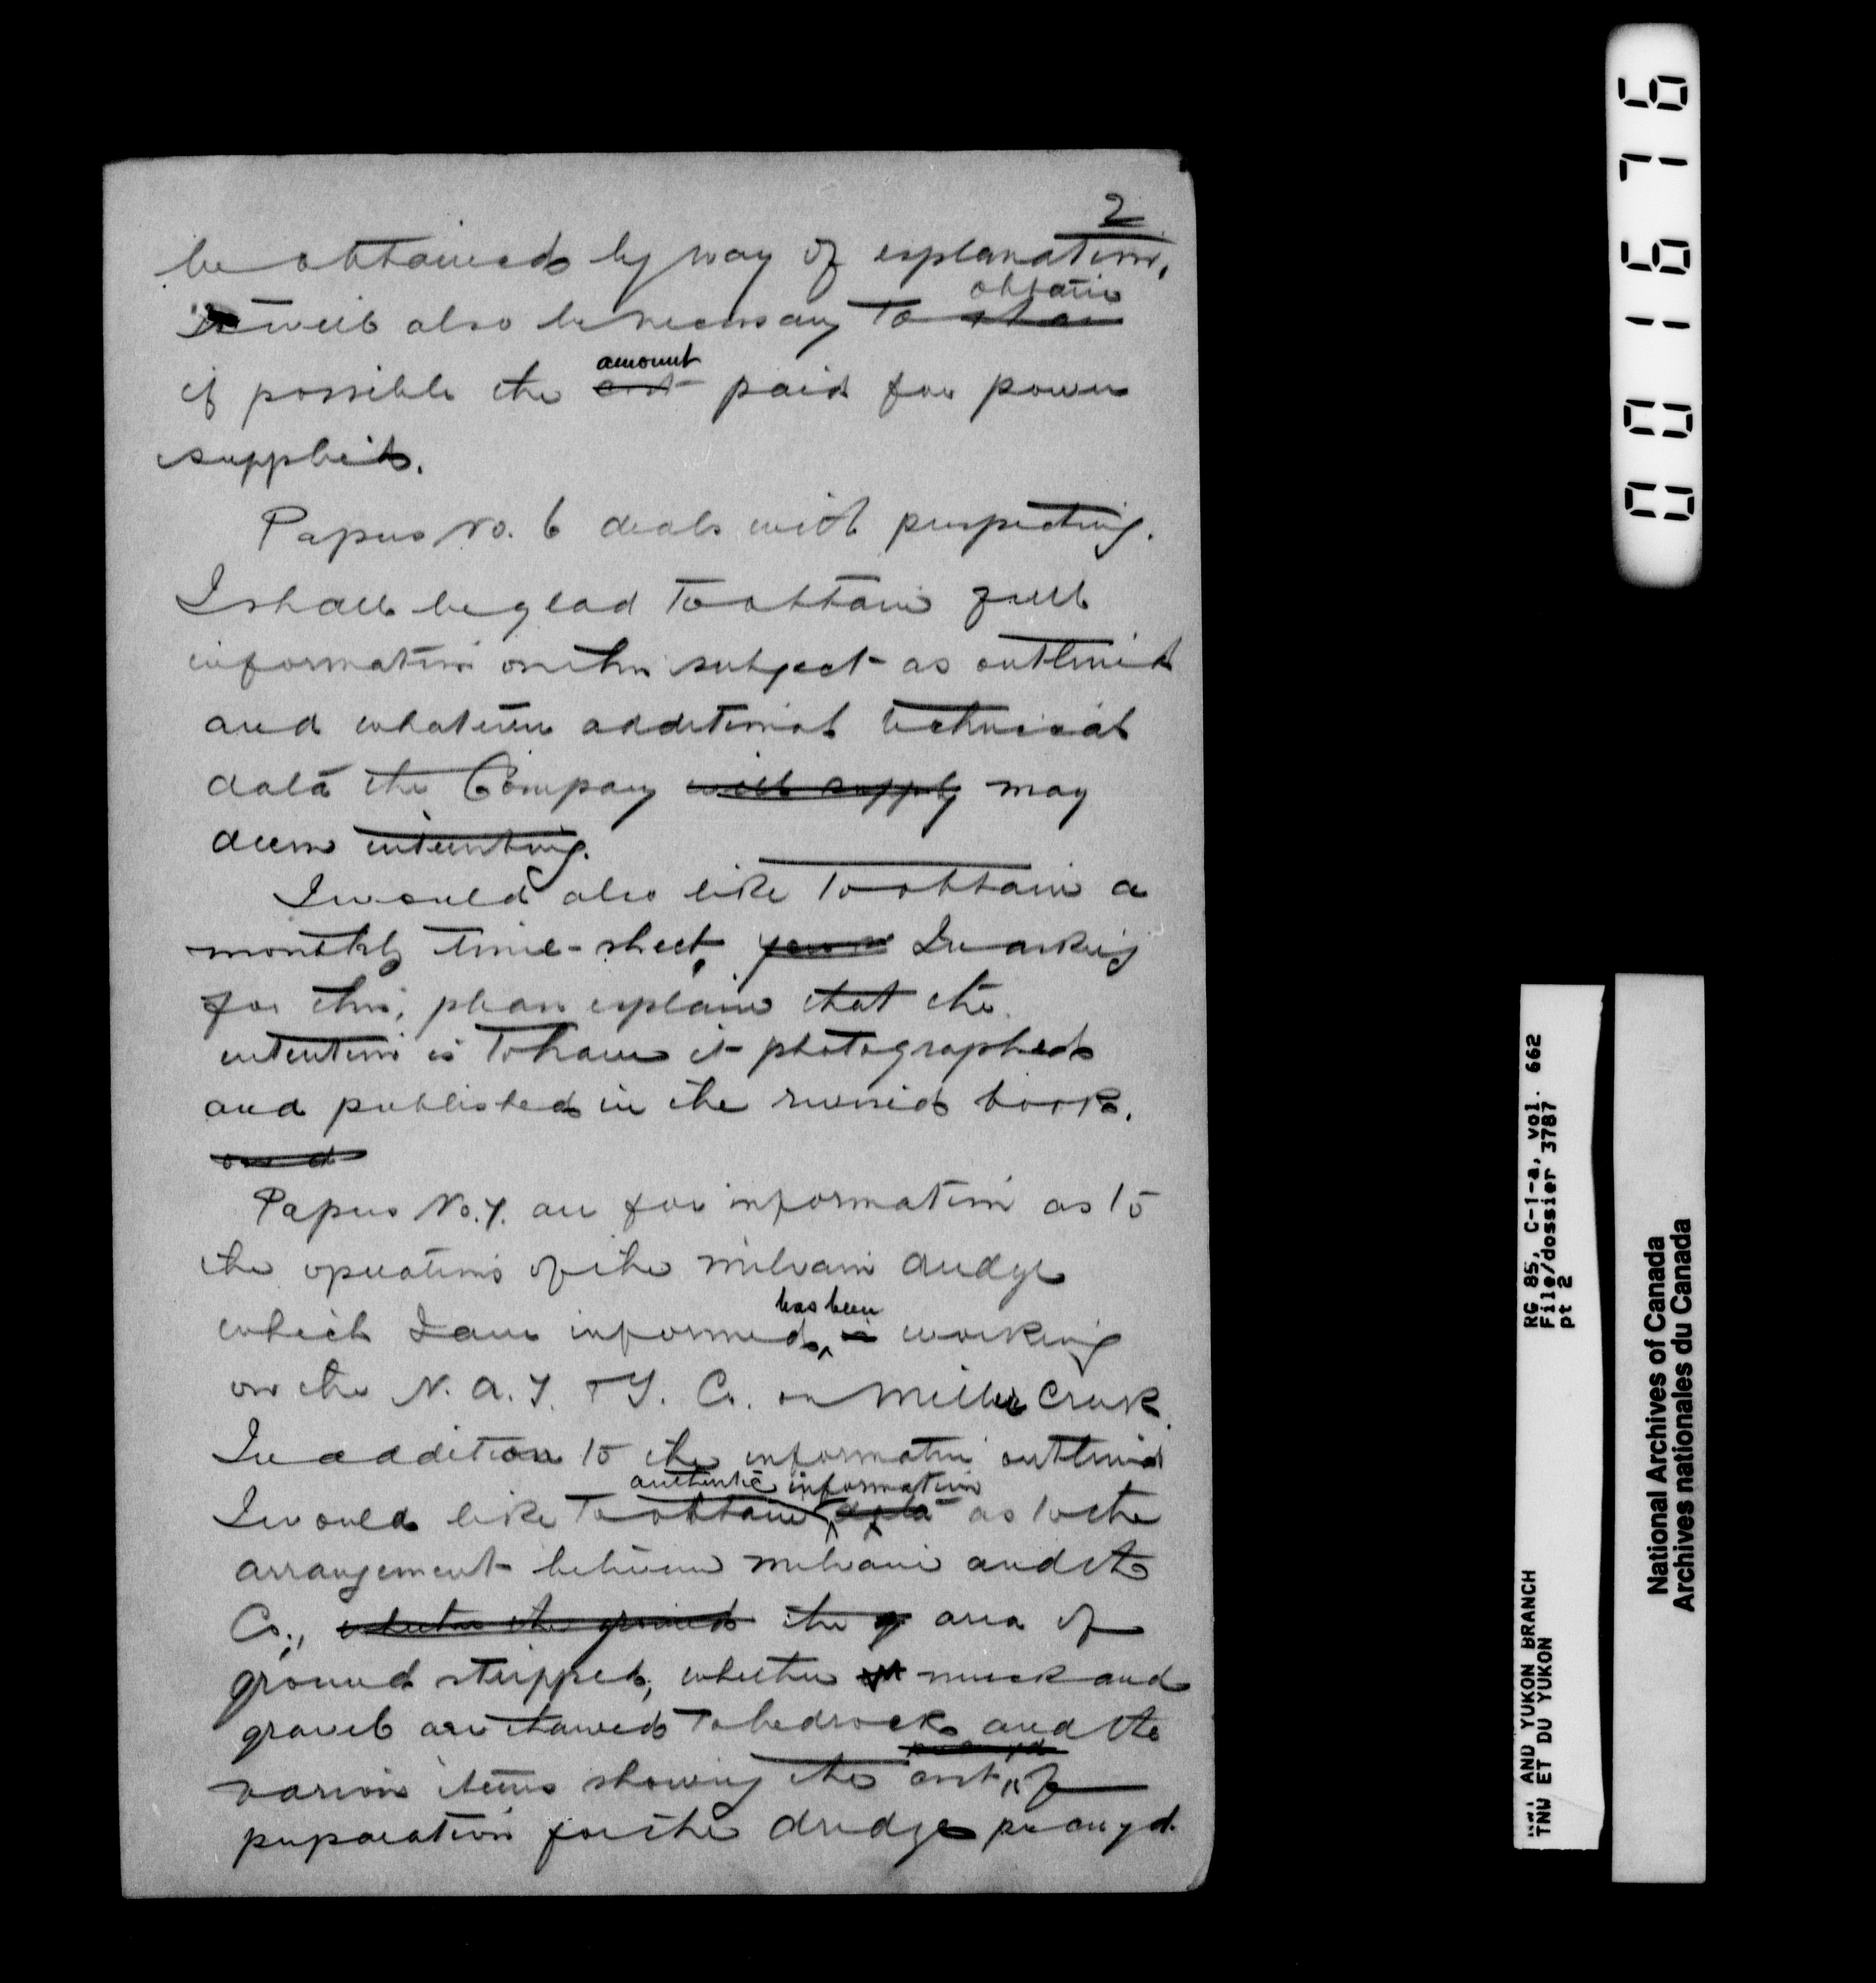 2
be obtained by way of explanation.
It will also be necessary to ~~show~~ obtain
if possible the ~~cost~~ amount paid for power
supplied.
Papers No. 6 deals with prospecting.
I shall be glad to obtain full
information on this subject as outlined
and whatever additional technical
data the Company ~~will supply~~ may
deem interesting.
I would also like to obtain a
monthly time-sheet, In asking
for this, please explain that the
intention is to have it photographed
and published in the revised book.
~~and~~
Papers No. 7. are for information as to
the operations of the Milvain dredge
which I am informed, ~~is~~ has been working
on the N. A. T. & T. Co. on Miller Creek.
In addition to the information outlined
I would like to obtain ~~data~~ authentic information as to the
arrangement between Milvain and the
Co., ~~whether the ground~~ the area of
ground stripped, whether muck and
gravel are thawed to bedrock and the
various items showing the cost, ~~per cu yd~~ of
preparation for the dredge per cu yd.
001676
RG 85, C-1-a, vol. 662
File/dossier 3787
pt 2
NWT AND YUKON BRANCH
TNW ET DU YUKON
National Archives of Canada
Archives nationales du Canada